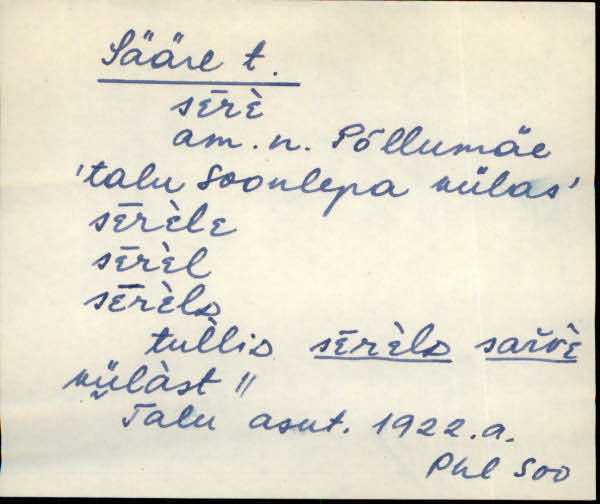 Sääre t.
sērè
am. n. Põllumäe
'talu Soonlepa külas'
sērèle
sērèl
sērèlᴅ
tuĺliᴅ sērèlᴅ saŕvè
külàst ॥
Talu asut. 1922.a.
Phl Soo